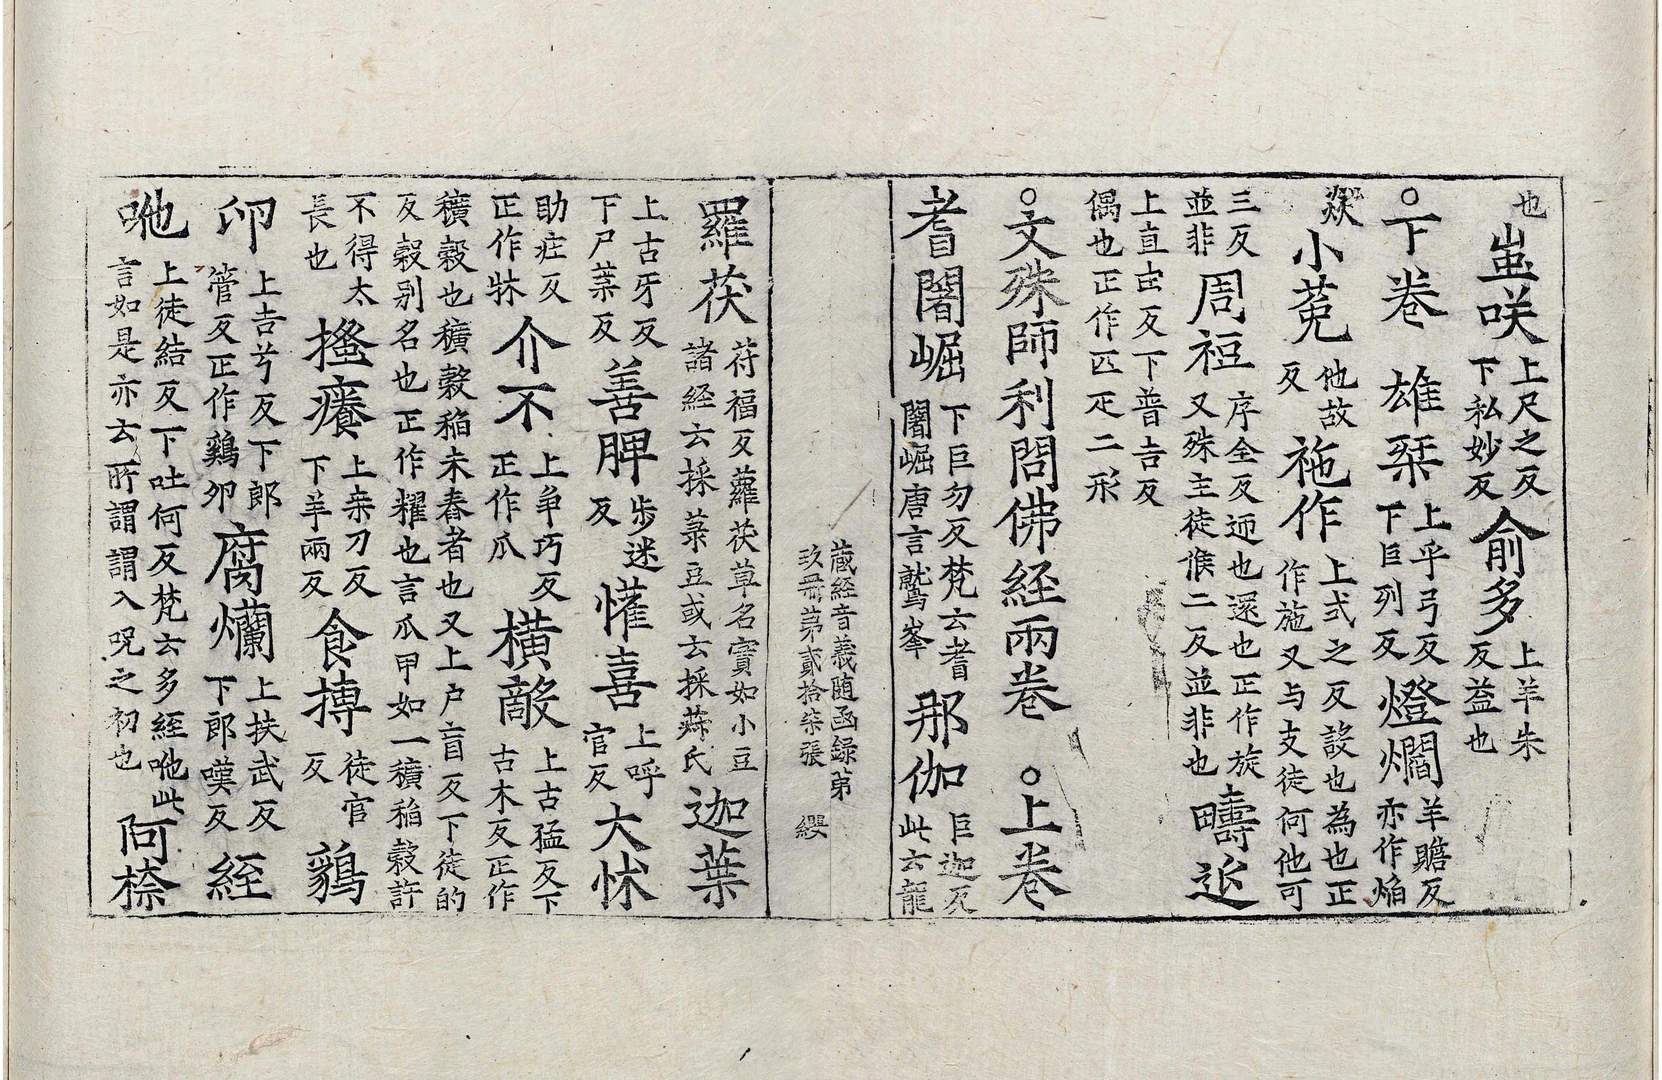 也蚩咲上尺之反下私妙反俞多上羊朱反益也
○下卷 雄桀上乎弓反下巨列反燈爓羊贍反亦作焔
焱小莵他故反袘作上式之反設也為也正作施又与支徒何他可
三反並非周䘼序全反迊也還也正作旋又殊主徒候二反並非也疇迯
上直㽵反下普吉反偶也正作匹疋二形
○文殊師利問佛経兩卷 ○上卷
耆闍崛下巨勿反梵云耆闍崛唐言鷲峯那伽巨迦反此云龍
藏経音義随函録第
玖冊第貳拾柒張 纓
羅茯苻福反蘿茯草名實如小豆諸経云採菉豆或云採蒜氏迦葉
上古牙反下尸葉反善脾步迷反懽喜上呼官反大怵
助㽵反正作牀介不上争巧反正作爪橫䜭上古猛反下古木反正作
穬穀也穬穀稲未舂者也又上户盲反下徒的反穀别名也正作糶也言爪甲如一穬稲穀許
不得太長也搔癢上桒刀反下羊兩反食摶徒官反鷄
夘上吉兮反下郎管反正作鷄夘腐爛上扶武反下郎嘆反経
咃上徒結反下吐何反梵云多経咃此言如是亦云所謂謂入呪之初也阿㮈